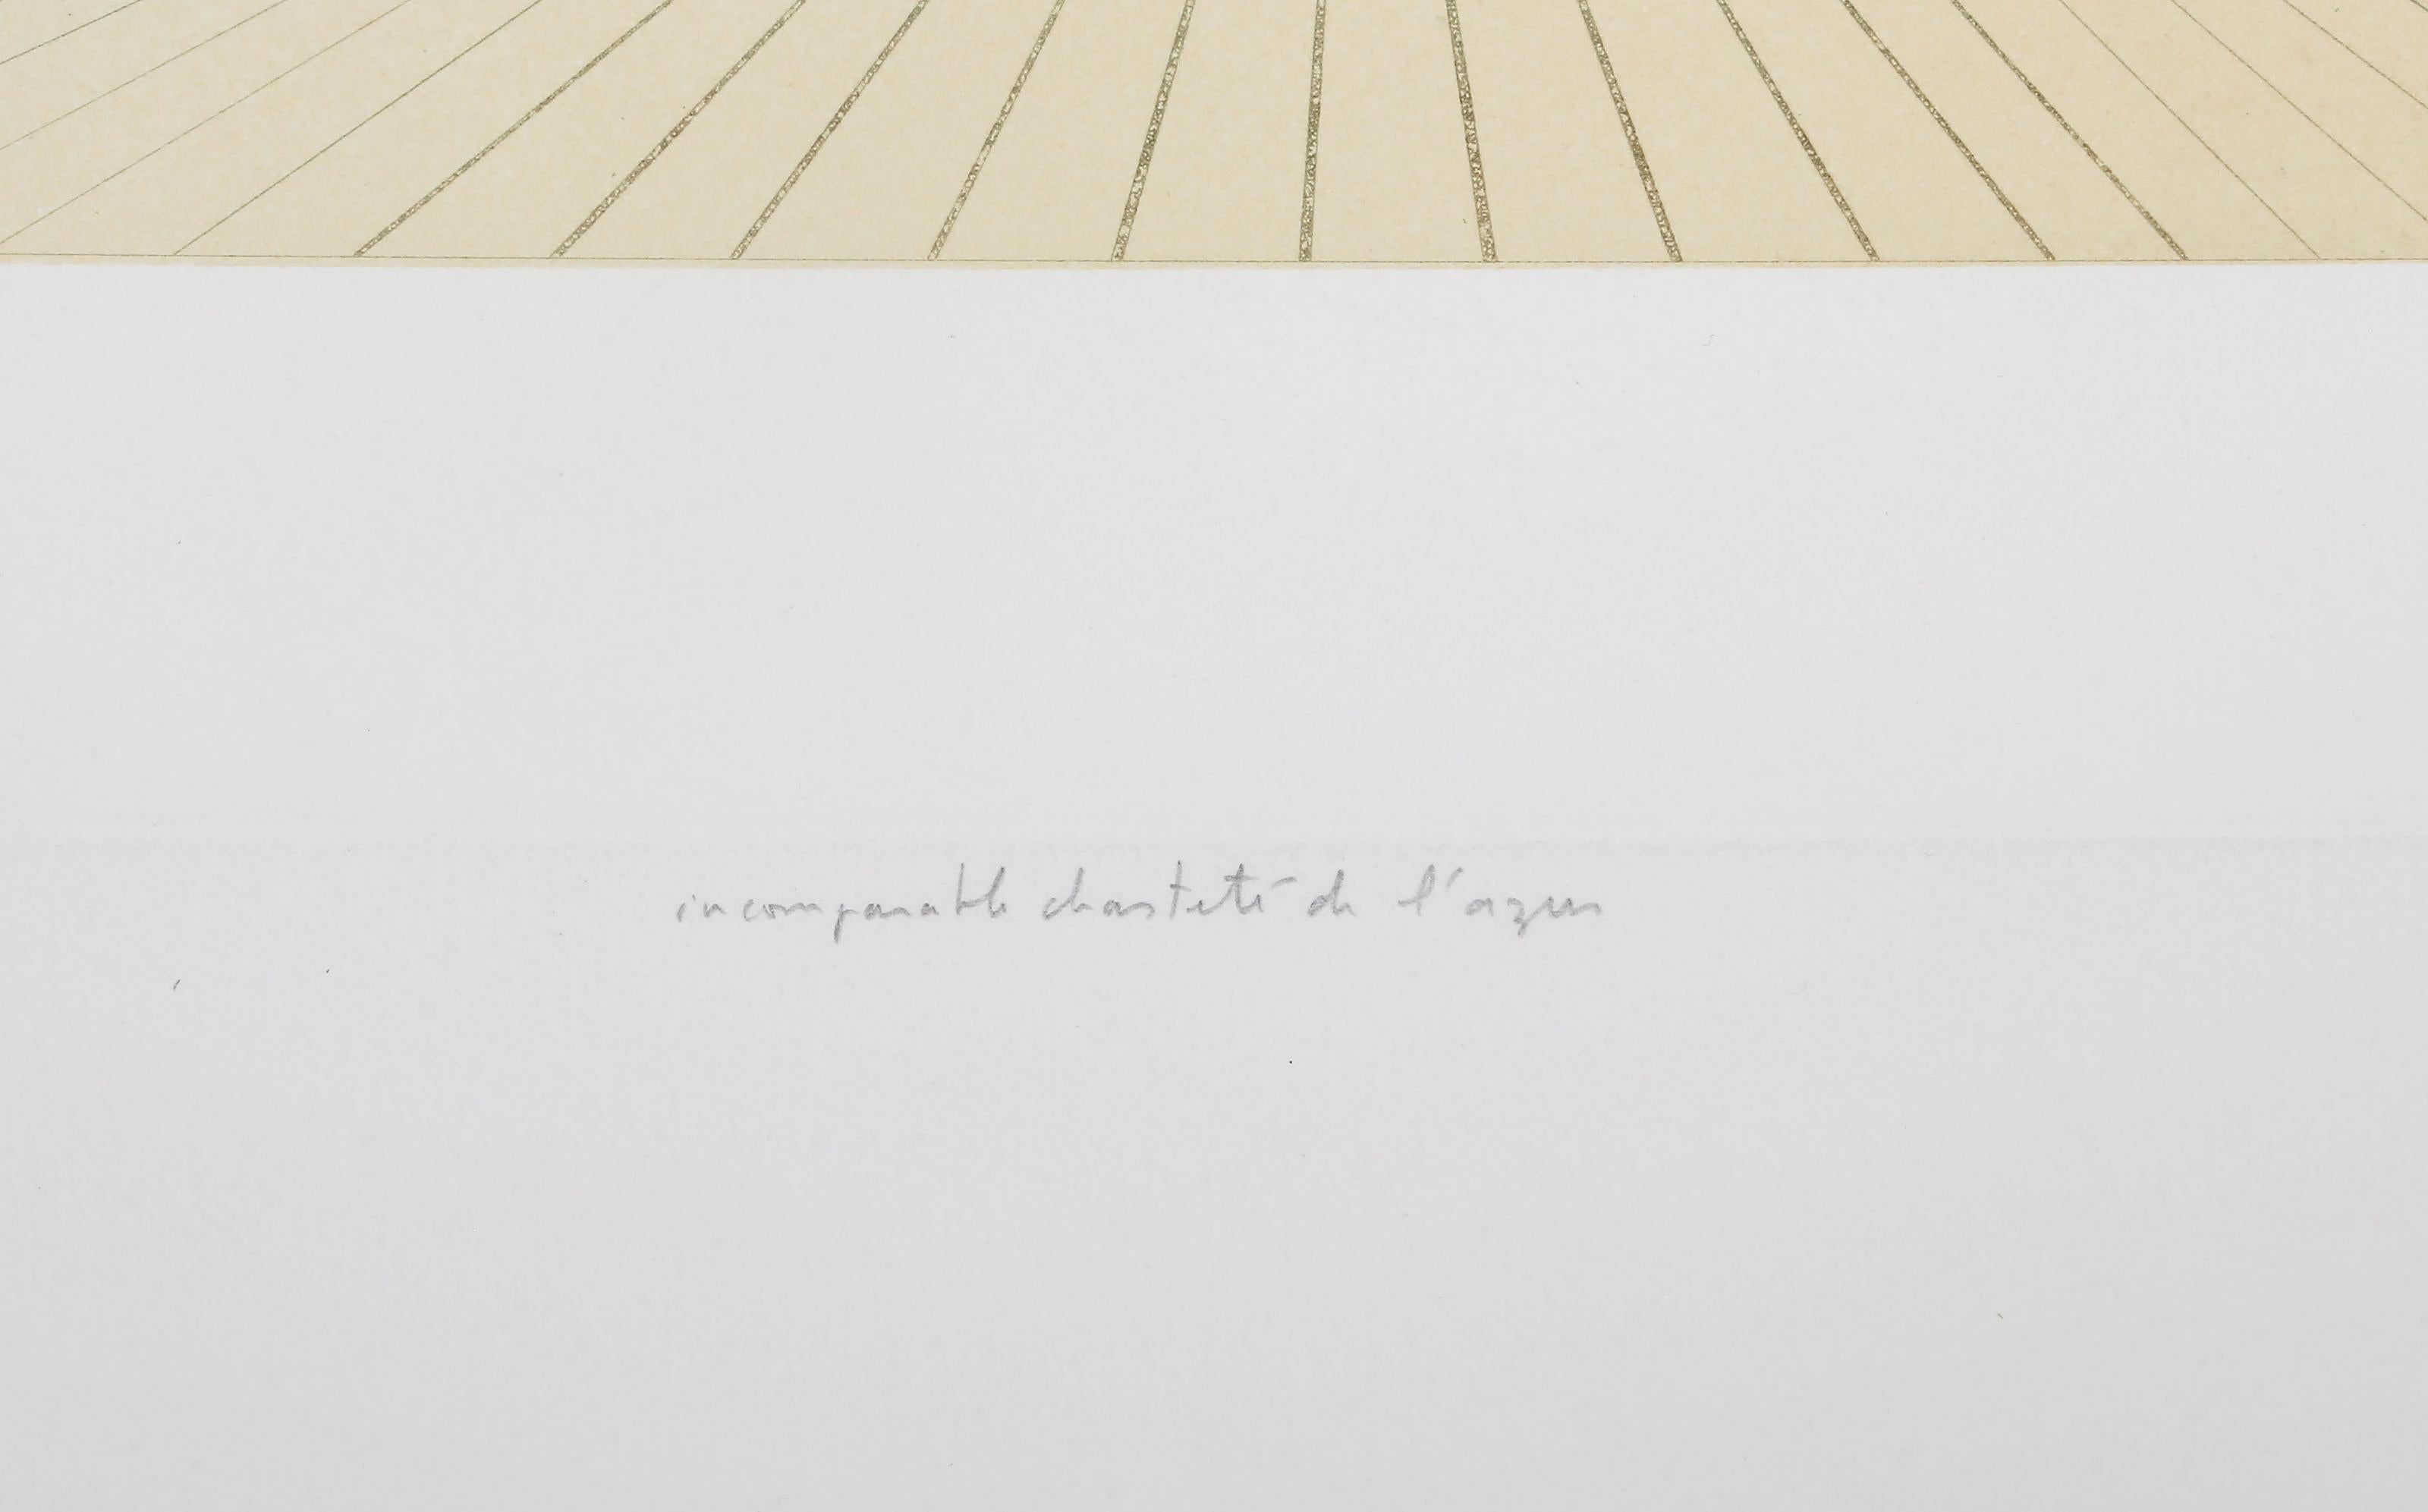 incomparable chasteté de l'azur